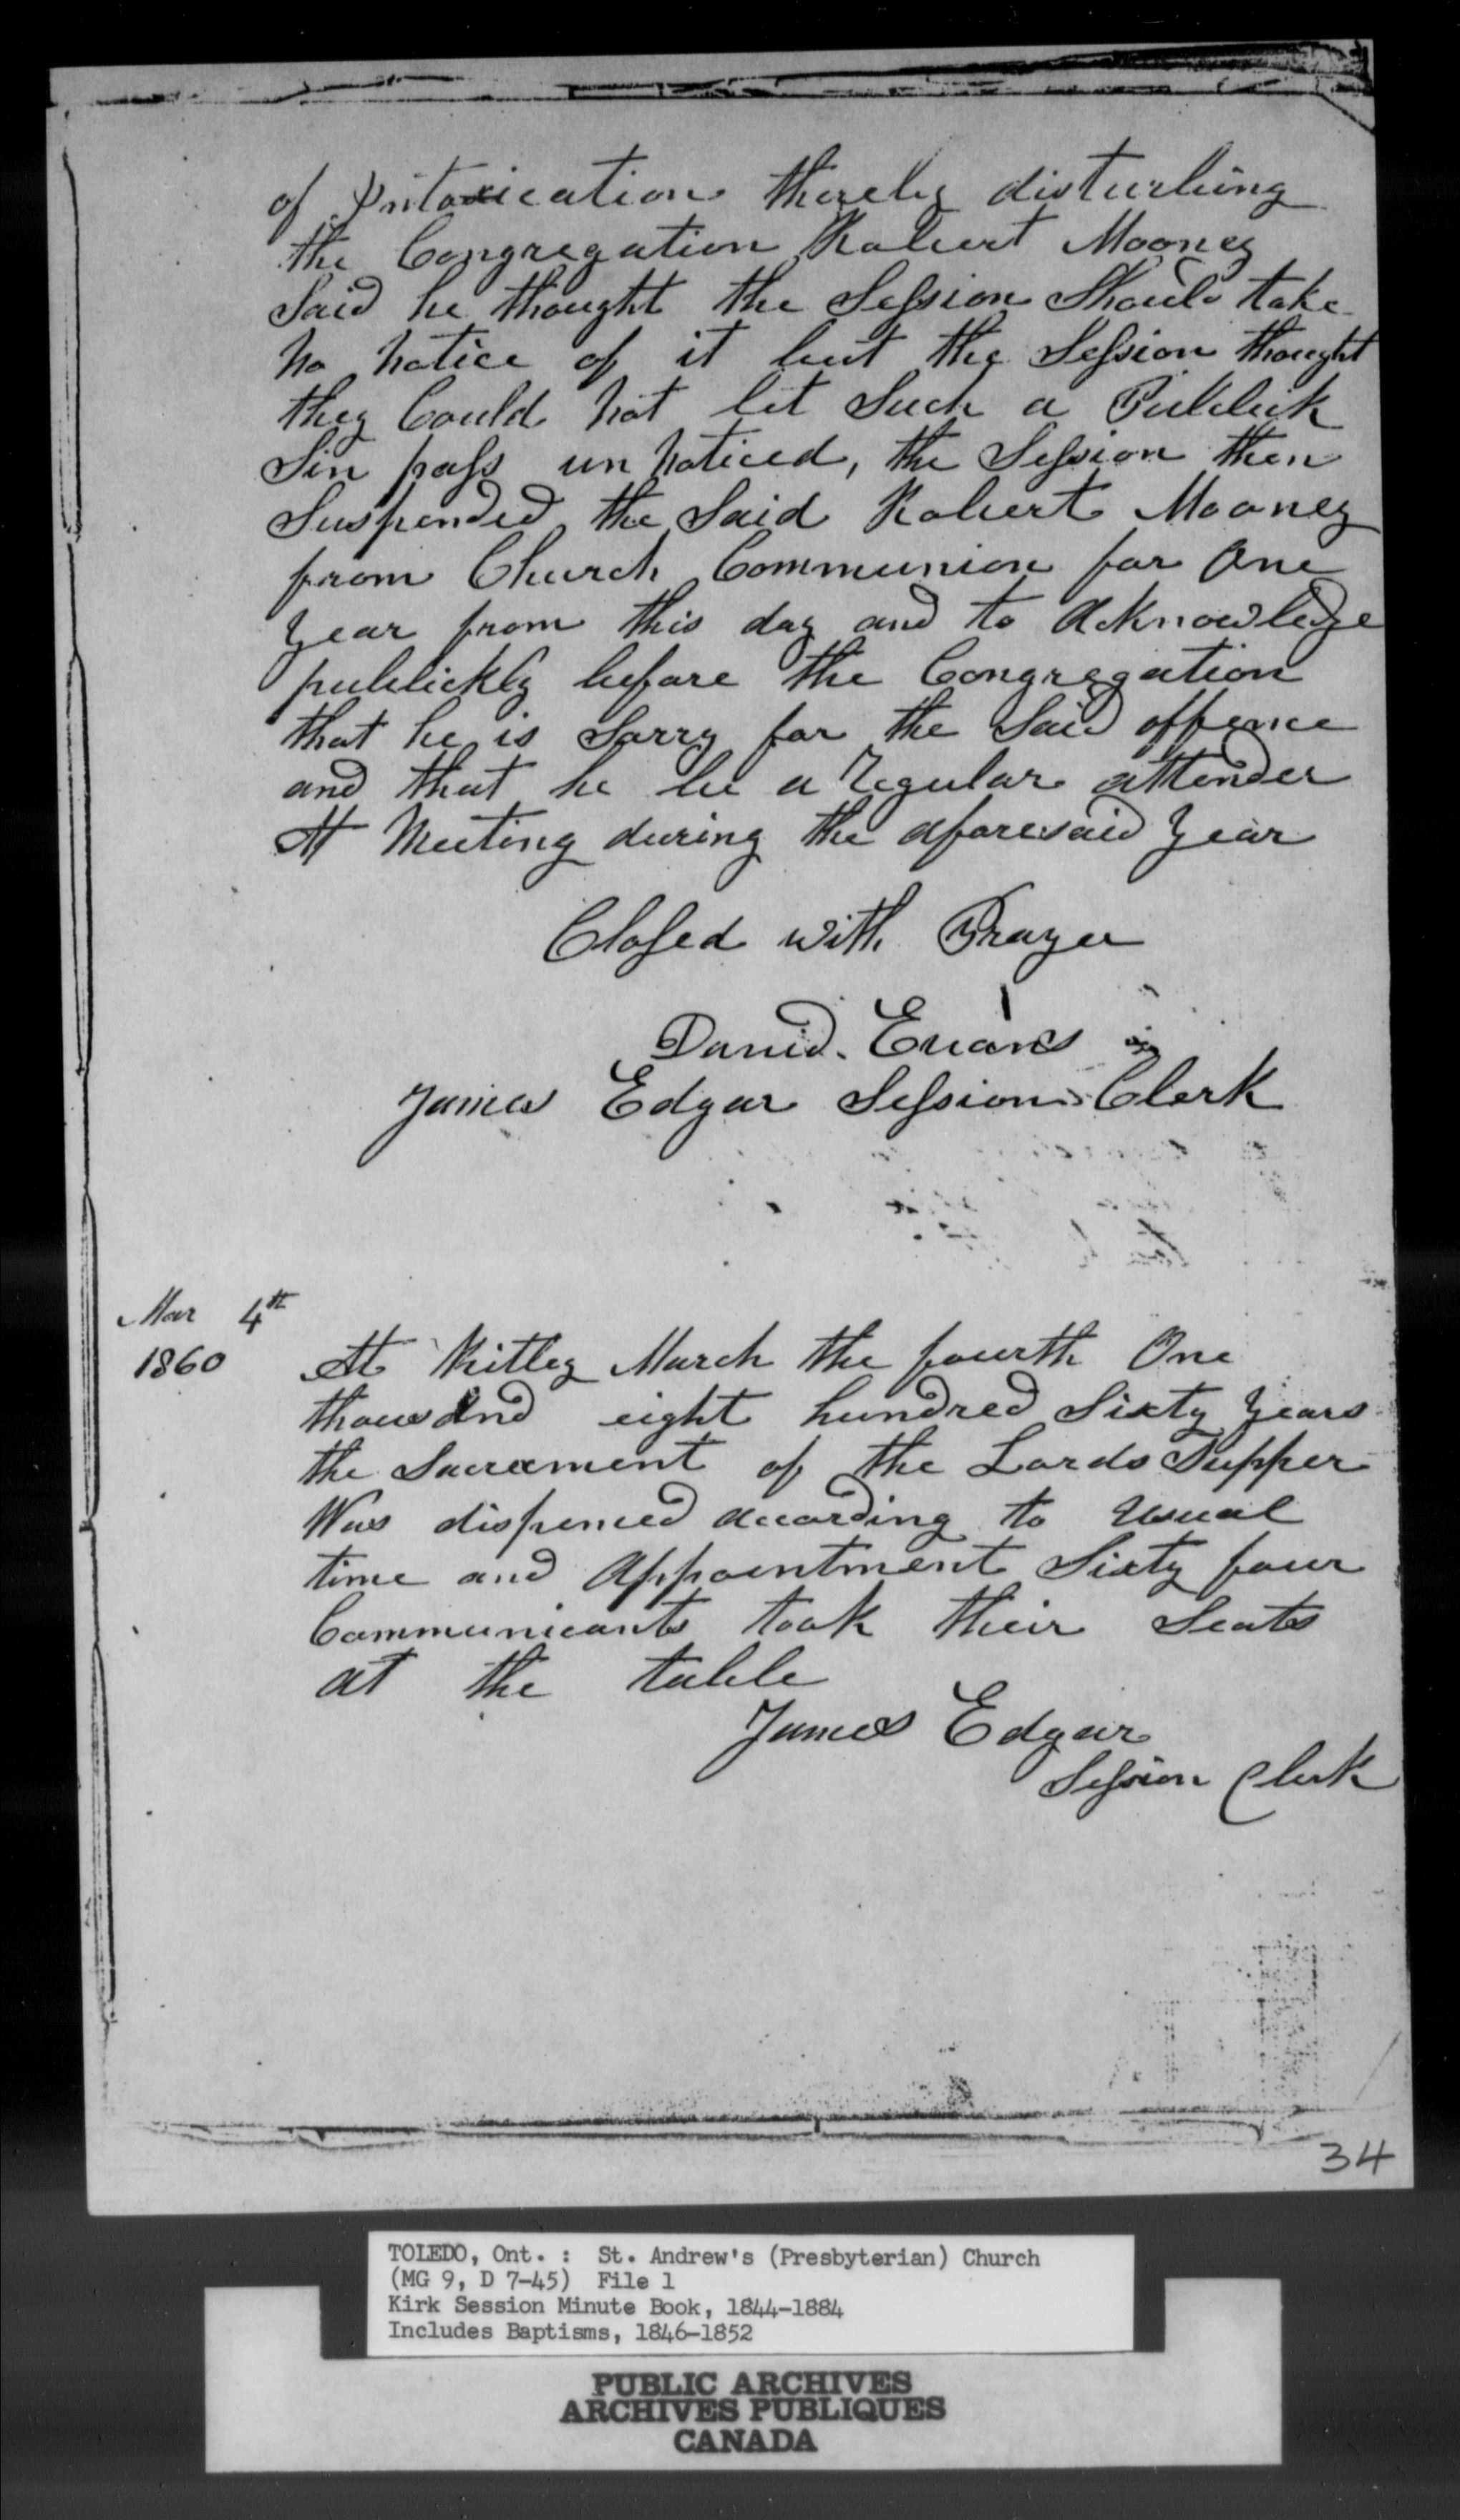 of Intoxication thereby disturbing
the Congregation Robert Mooney
Said he thought the Session Should take
no notice of it but the Session thought
they Could not let Such a Publick
Sin pass un noticed, the Session then
Suspended the Said Robert Mooney
from Church Communion for One
Year from this day and to Acknowledge
publickly before the Congregation
that he is Sorry for the Said offence
and that he be a regular attender
At Meeting during the aforesaid Year
Closed with Prayer
David Evans
James Edgar Session Clerk
Mar 4th
1860
At Kitley March the fourth One
thousand eight hundred Sixty Years
the Sacrement of the Lords Supper
Was dispenced according to Usual
time and Appointment Sixty four
Communicants took their Seats
at the table
James Edgar
Session Clerk
34
TOLEDO, Ont. : St. Andrew's (Presbyterian) Church
(MG 9, D 7-45) File 1
Kirk Session Minute Book, 1844-1884
Includes Baptisms, 1846-1852
PUBLIC ARCHIVES
ARCHIVES PUBLIQUES
CANADA